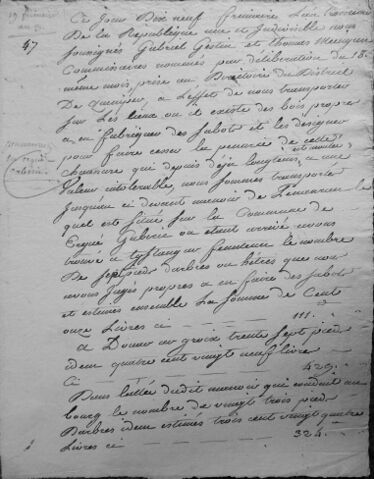 19 frimaire
an 3
47
Ce jour Dix neuf frimaire L'an troisieme
De la Republique une et Indivisible nous
soussignés Gabriel Gestin et Thomas
Commissaires nommés par deliberation du 18
meme mois prise au Directoire du District
De quimper, a L'effet de nous transporter
sur Les Lieux ou il existe des bois propre
a en fabriquer des Sabots et les designer
pour faire cesser la penurie de cette
chaussure qui depuis deja longtems a une
valeur intolerable, nous sommes transporté
jusqu'au ci devant manoir de Lezergué le
quel est situé sur la Commune de
Ergué Gabéric ou etant arrivé avons
trouvé a le nombre
De sept pied d'arbres ou hêtres que nous
avons jugés propres a en faire des sabots
et estimés ensemble La Somme de Cent
onze Livres ci 111.
a Douar ar groix trente sept pied
idem quatre cent vingt neuf livre
Ci 429.
Dans l'allée dudit manoir qui conduit au
bourg le nombre de vingt trois pied
D'arbres idem estimés trois cent vingt quatre
Livres ci 324.